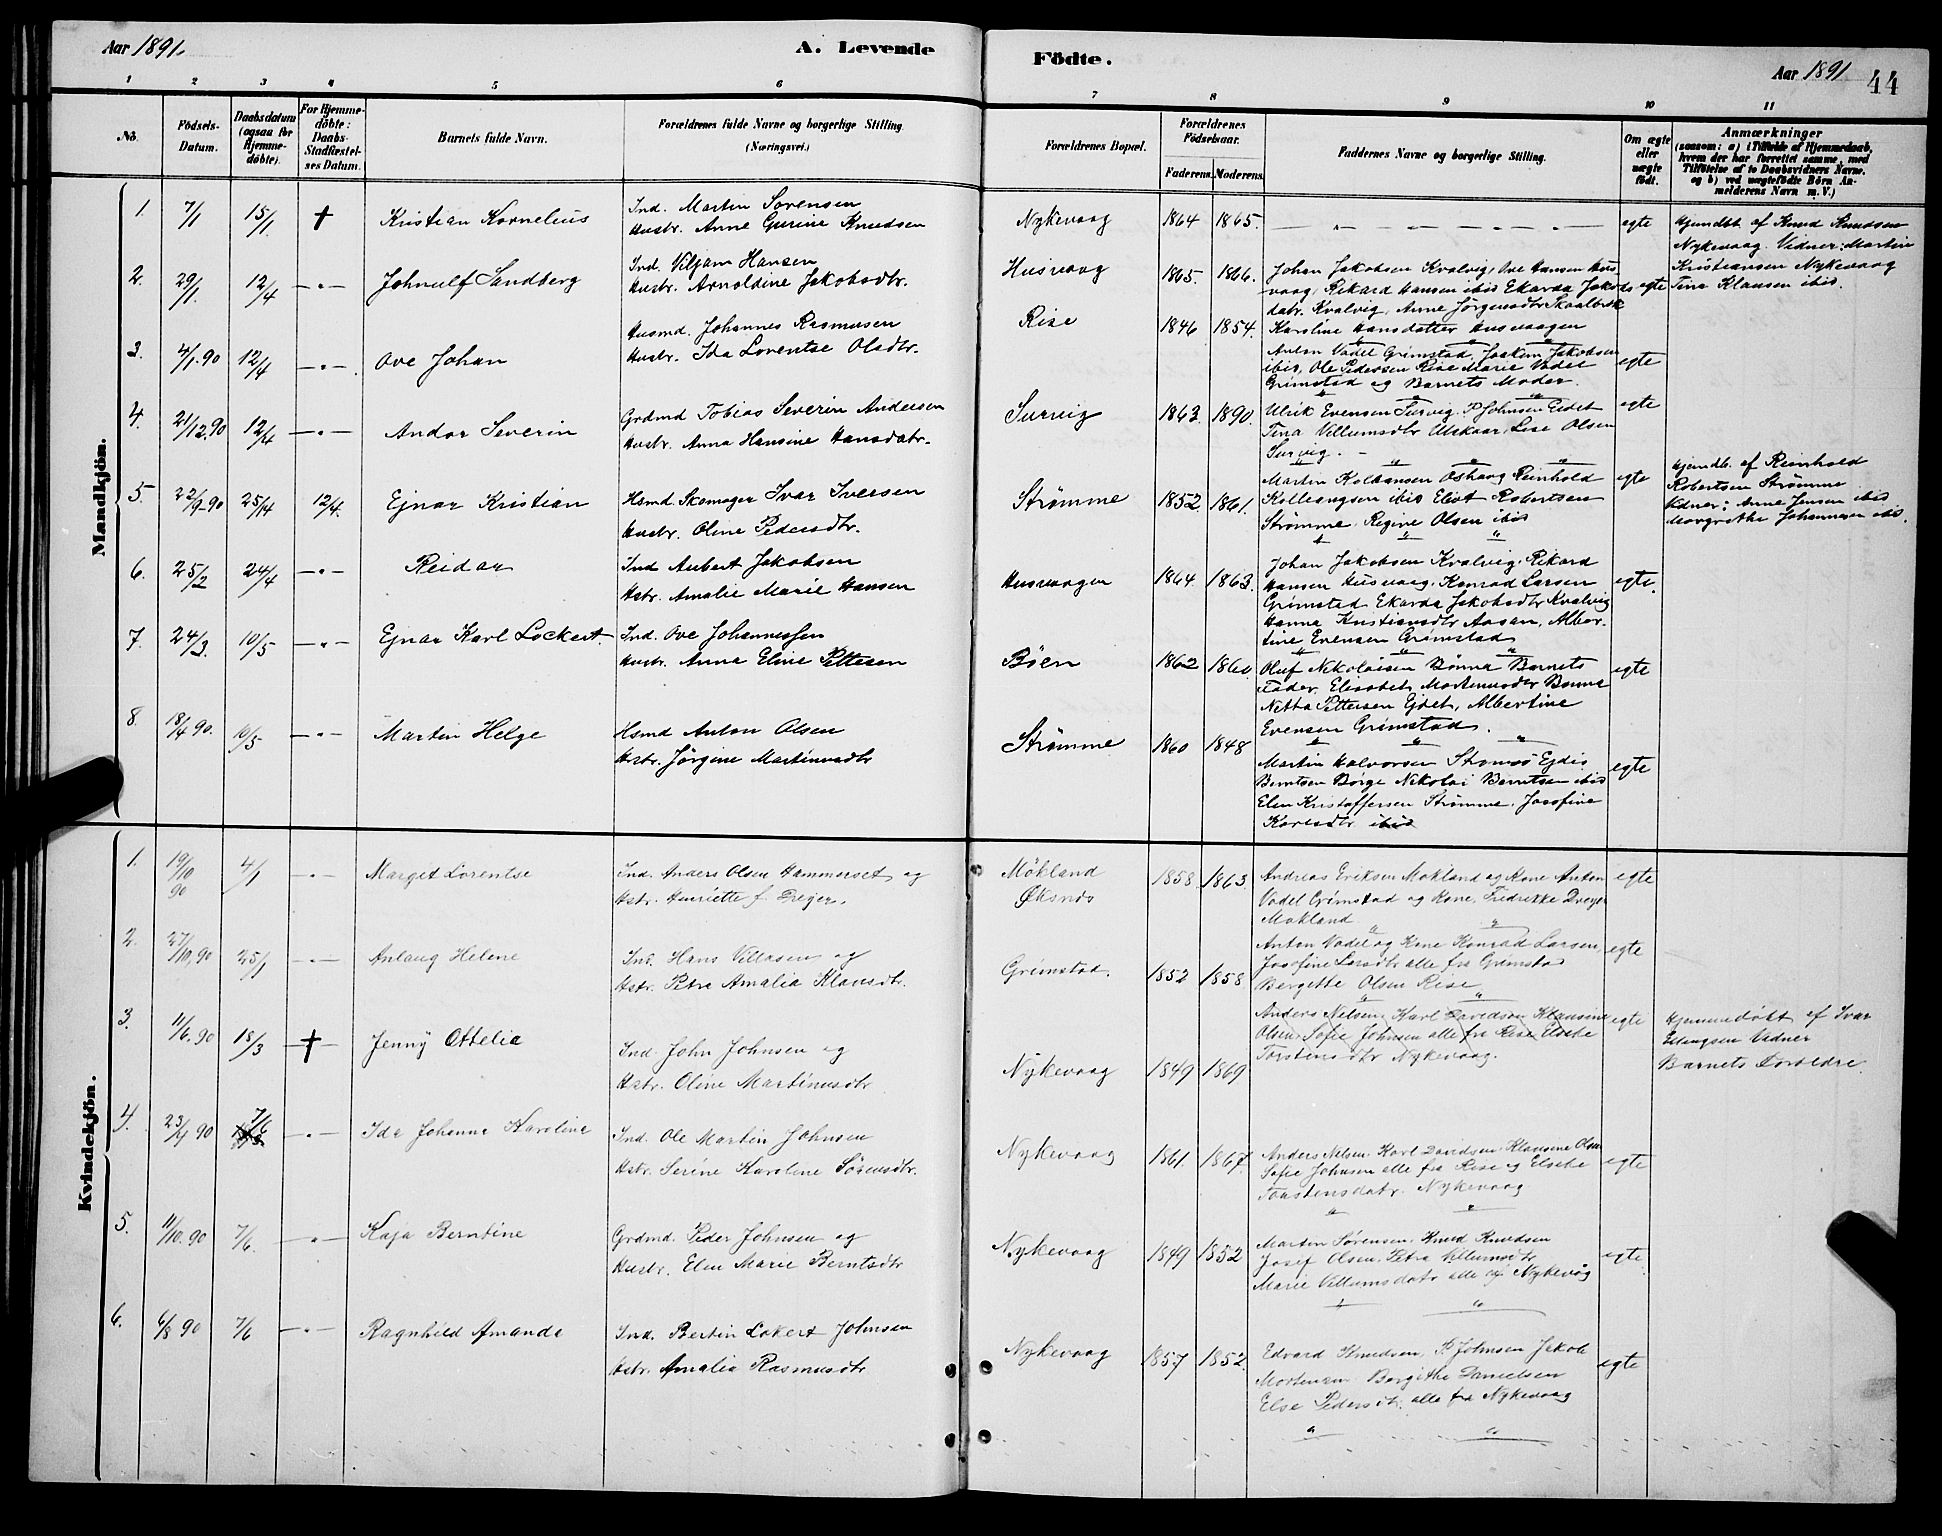 Aar 1891.
A. Levende
Födte.
Aar 1891
44
1 2 3 4 5 6 7 8 9 10 11
No.
Födsels-Datum.
Daabsdatum (ogsaa for Hjemme-döbte).
For Hjemme-döbte: Daabs-Stadfæstel-ses Datum.
Barnets fulde Navn.
Forældrenes fulde Navne og borgerlige Stilling.
(Næringsvei.)
Forældrenes Bopæl.
Forældrenes Födselsaar.
Faderens. Moderens.
Faddernes Navne og borgerlige Stilling.
Om ægte eller uægte födt.
Anmærkninger
(saasom: a) i Tilfælde af Hjemmedaab,
hvem der har forrettet samme, med
Tilföielse af to Daabsvidners Navne.
og b) ved uægtefödte Börn An-
melderens Navn m. V.)
Mandkjön.
1. 7/1 15/1. † Kristian Kornelius
Ind. Martin Sørensen
Hustr. Anne Gurine Knudsen
Nykevaag 1864 1865.
egte
Hjemdbt af Knud Knudsen
Nykevaag. Vidner: Martin
Kristiansen Nykevaag
Tina Klausen ibis.
2. 29/1. 12/4 — " — Johnulf Sandberg
Ind. Viljam Hansen
Hustr. Arnoldine Jakobsdtr.
Husvaag 1865. 1866.
Johan Jakobsen Kvalvig, Ove Hansen Hus
vaag, Rikard Hansen ibis Ekarda Jakobs
datr. Kvalvig, Anne Jørgensdtr Skaalbrek
Karoline Hansdatter Husvaagen
egte
3. 4/1.90 12/4 — " — Ove Johan
Husmd. Johannes Rasmusen
Hustr. Ida Lorentse Olsdtr.
Rise 1846 1854.
Anton Vadel Grimstad, Joakim Jakobsen
ibis, Ole Pedersen Rise Marie Vadel
Grimstad og Barnets Moder.
egte
4. 21/12.90 12/4 — " — Andor Severin
Grdmd Tobias Severin Andersen
Hustr. Anna Hansine Hansdatr.
Survig 1863. 1890.
Ulrik Evensen Survig. P. Johnsen Eidet
Tina Villumsdtr Alskaar, Lise Olsen
Survig.
egte
5. 22/9-90 25/14 12/4. Ejnar Kristian
Hsmd. Skomager Ivar Iversen
Hustr. Oline Pedersdtr.
Strømme 1852. 1861.
Martin Reinhold
ibis Robertsen
Strømme. Regine Olsen ibis
egte
Hjemdb. af Reinhold
Robertsen Strømme
Vidner: Anne Jensen ibis
Margrethe Johannesen ibis.
6. 25/2 24/4 — " — Reidar
Ind Aubert Jakobsen
Hstr. Amalie Marie Hansen
Husvaagen 1864 1863.
Johan Jakobsen Kvalvig, Rikard
Hansen Husvaag, Konrad Larsen
Grimstad Ekarda Jakobsdtr Kvalvig
Hanna Kristiansdtr Aasan, Alber
tine Evensen Grimstad
egte.
7. 24/3. 10/5 — " — Ejnar Karl Lockert.
Ind. Ove Johannessen
Hustr. Anna Eline Pettersen
Böen 1862 1860.
Oluf Nikolaisen Bönna Barnets
Fader, Elisabet Martinusdtr Bönna
Netta Pettersen Ejdet, Albertine
Evensen Grimstad.
egte
8. 18/4 90. 10/5 — " — Martin Helge
Hsmd Anton Olsen
Hstr. Jørgine Martinusdtr
Strømme 1860 1848
Martin Halvorsen Ejdis
Berntsen Børge Nikolai Berntsen ibis
Elen Kristoffersen Strømme, Josefine
Karlsdtr ibis
egte
Kvindekjön.
1. 19/10 90 4/1 — " — Margit Lorentse
Ind. Anders Olsen Hammerset og
Hstr. Henriette f. Dreyer.
Mökland Öksnæs 1858. 1863
Andreas Eriksen Mokland og Kone Anton
Vadel Grimstad og Kone, Fredrikke Dreyer
Mokland
egte
2. 27/10, 90 25/1 — " — Anlaug Helene
Ind. Hans Villasen og
Hstr. Petra Amalia Klausdtr.
Grimstad. 1852 1858
Anton Vadel og Kone Konrad Larsen,
Josefine Larsdtr alle fra Grimstad
Bergette Olsen Rise
egte
3. 11/6. 90 18/3 † Jenny Ottelie
Ind. John Johnsen og
Hstr. Oline Martinusdtr
Nykevaag 1849 1869
Anders Nelsen, Karl Davidsen Klausine
Olsen, Sofie Johnsen alle fra Rise Elsebe
Torstensdtr Nykevaag.
egte
Hjemmedøbt af Ivar
Ellingsen Vidner
Barnets Foreldre.
4. 23/4 90 7/6 — " — Ida Johanna Karoline
Ind. Ole Martin Johnsen
Hstr. Serine Karoline Sörensdtr.
Nykevaag 1861. 1867.
Anders Nelsen Karl Davidsen, Klausine Olsen
Sofie Johnsen alle fra Rise og Elsebe
Torstensdatr. Nykevaag
egte
5. 11/10. 90 7/6. — " — Kaja Berntine
Grdmd. Peder Johnsen og
Hustr. Elen Marie Berntsdtr
Nykevaag 1849 1852
Martin Sörensen, Knud Knudsen
Josef Olsen, Petra Villumsdtr
Marie Villumsdatr alle af Nykevåg
egte
6. 6/8 90 7/6 — " — Ragnhild Amanda
Ind. Bertin Lokert Johnsen
Hstr. Amalia Rasmusdtr
Nykevaag 1857 1852.
Edvard Knudsen, P. Johnsen Jakob
Mortensen Bergithe Danielsen
Else Pedersdtr. alle fra Nykevaag
egte